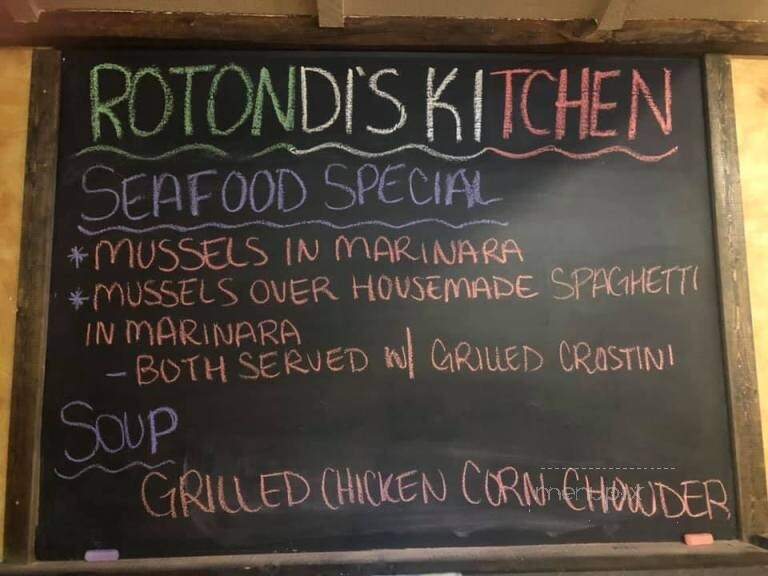 ROTONDI'S KITCHEN
SEAFOOD SPECIAL
* MUSSELS IN MARINARA
* MUSSELS OVER HOUSEMADE SPAGHETTI
IN MARINARA
- BOTH SERVED W/ GRILLED CROSTINI
SOUP
GRILLED CHICKEN CORN CHOWDER
menupix